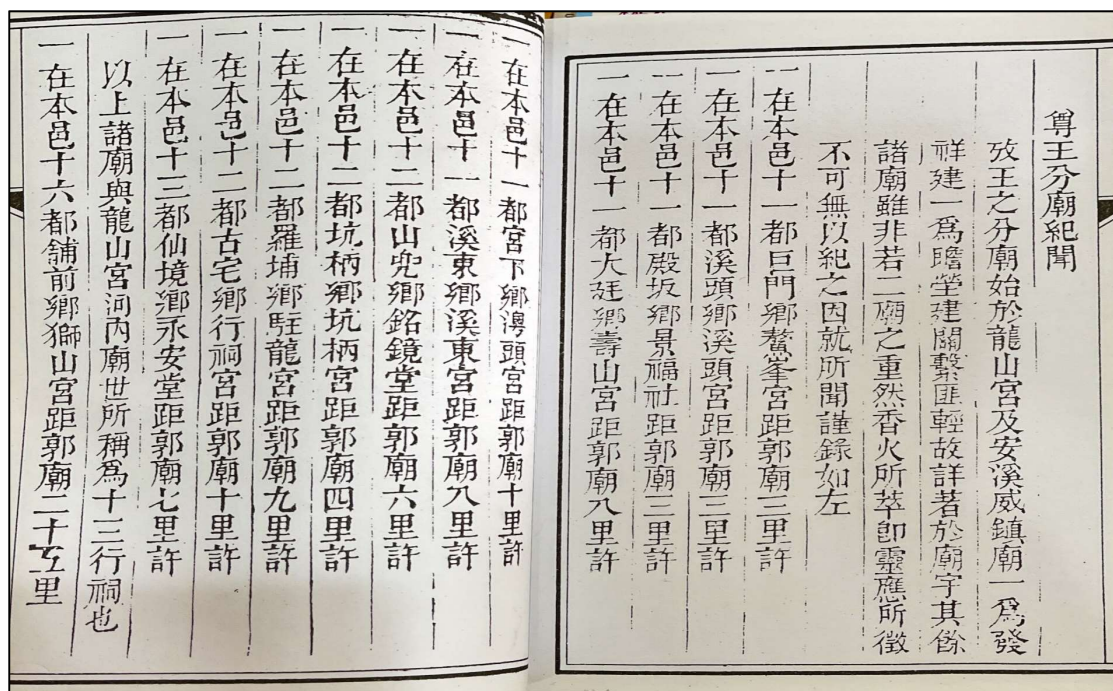 尊王分廟紀聞
攷王之分廟始於龍山宮及安溪威鎮廟一爲發
祥建一爲瞻塋建關繫匪輕故詳著於廟宇其餘
諸廟雖非若二廟之重然香火所萃卽靈應所徵
不可無以紀之因就所聞謹錄如左
一在本邑十一都巨門鄉鰲峯宮距郭廟三里許
一在本邑十一都溪頭鄉溪頭宮距郭廟三里許
一在本邑十一都殿坂鄉景福社距郭廟三里許
一在本邑十一都大廷鄉壽山宮距郭廟八里許
一在本邑十一都宮下鄉澳頭宮距郭廟十里許
一在本邑十一都溪東鄉溪東宮距郭廟八里許
一在本邑十二都山兜鄉銘鏡堂距郭廟六里許
一在本邑十二都坑柄鄉坑柄宮距郭廟四里許
一在本邑十二都羅埔鄉駐龍宮距郭廟九里許
一在本邑十二都古宅鄉行祠宮距郭廟十里許
一在本邑十三都仙境鄉永安堂距郭廟七里許
以上諸廟與龍山宮河內廟世所稱爲十三行祠也
一在本邑十六都舖前鄉獅山宮距郭廟二十五里